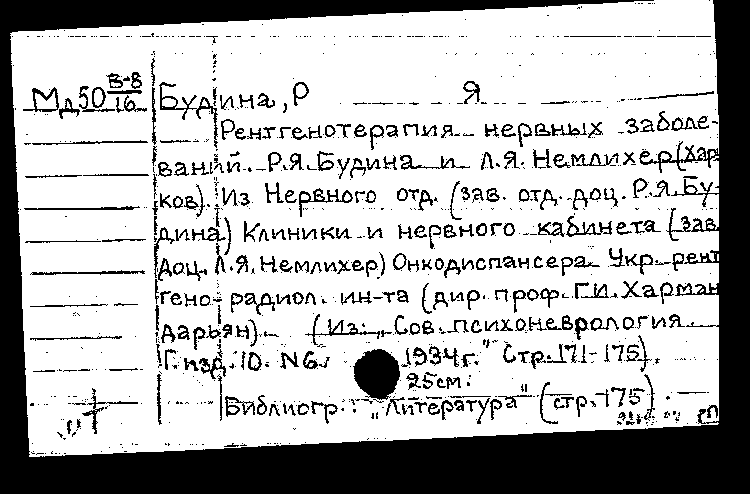 Мд50 В-8/16 Будина, Р Я
Рентгенотерапия нервных заболе-
ваний. Р.Я. Будина и Л.Я. Немлихер (Хар
ков). Из Нервного отд. (зав. отд. доц. Р.Я. Бу-
дина) Клиники и нервного кабинета (зав
доц. Л.Я. Немлихер) Онкодиспансера Укр. рент
гено-радиол. ин-та (дир. проф. Г.И. Харман
дарьян). (Из: „Сов. психоневрология
Г. изд. 10. N6. 1934г." Стр. 171-175).
25см.
Библиогр.: „Литература" (стр. 175).